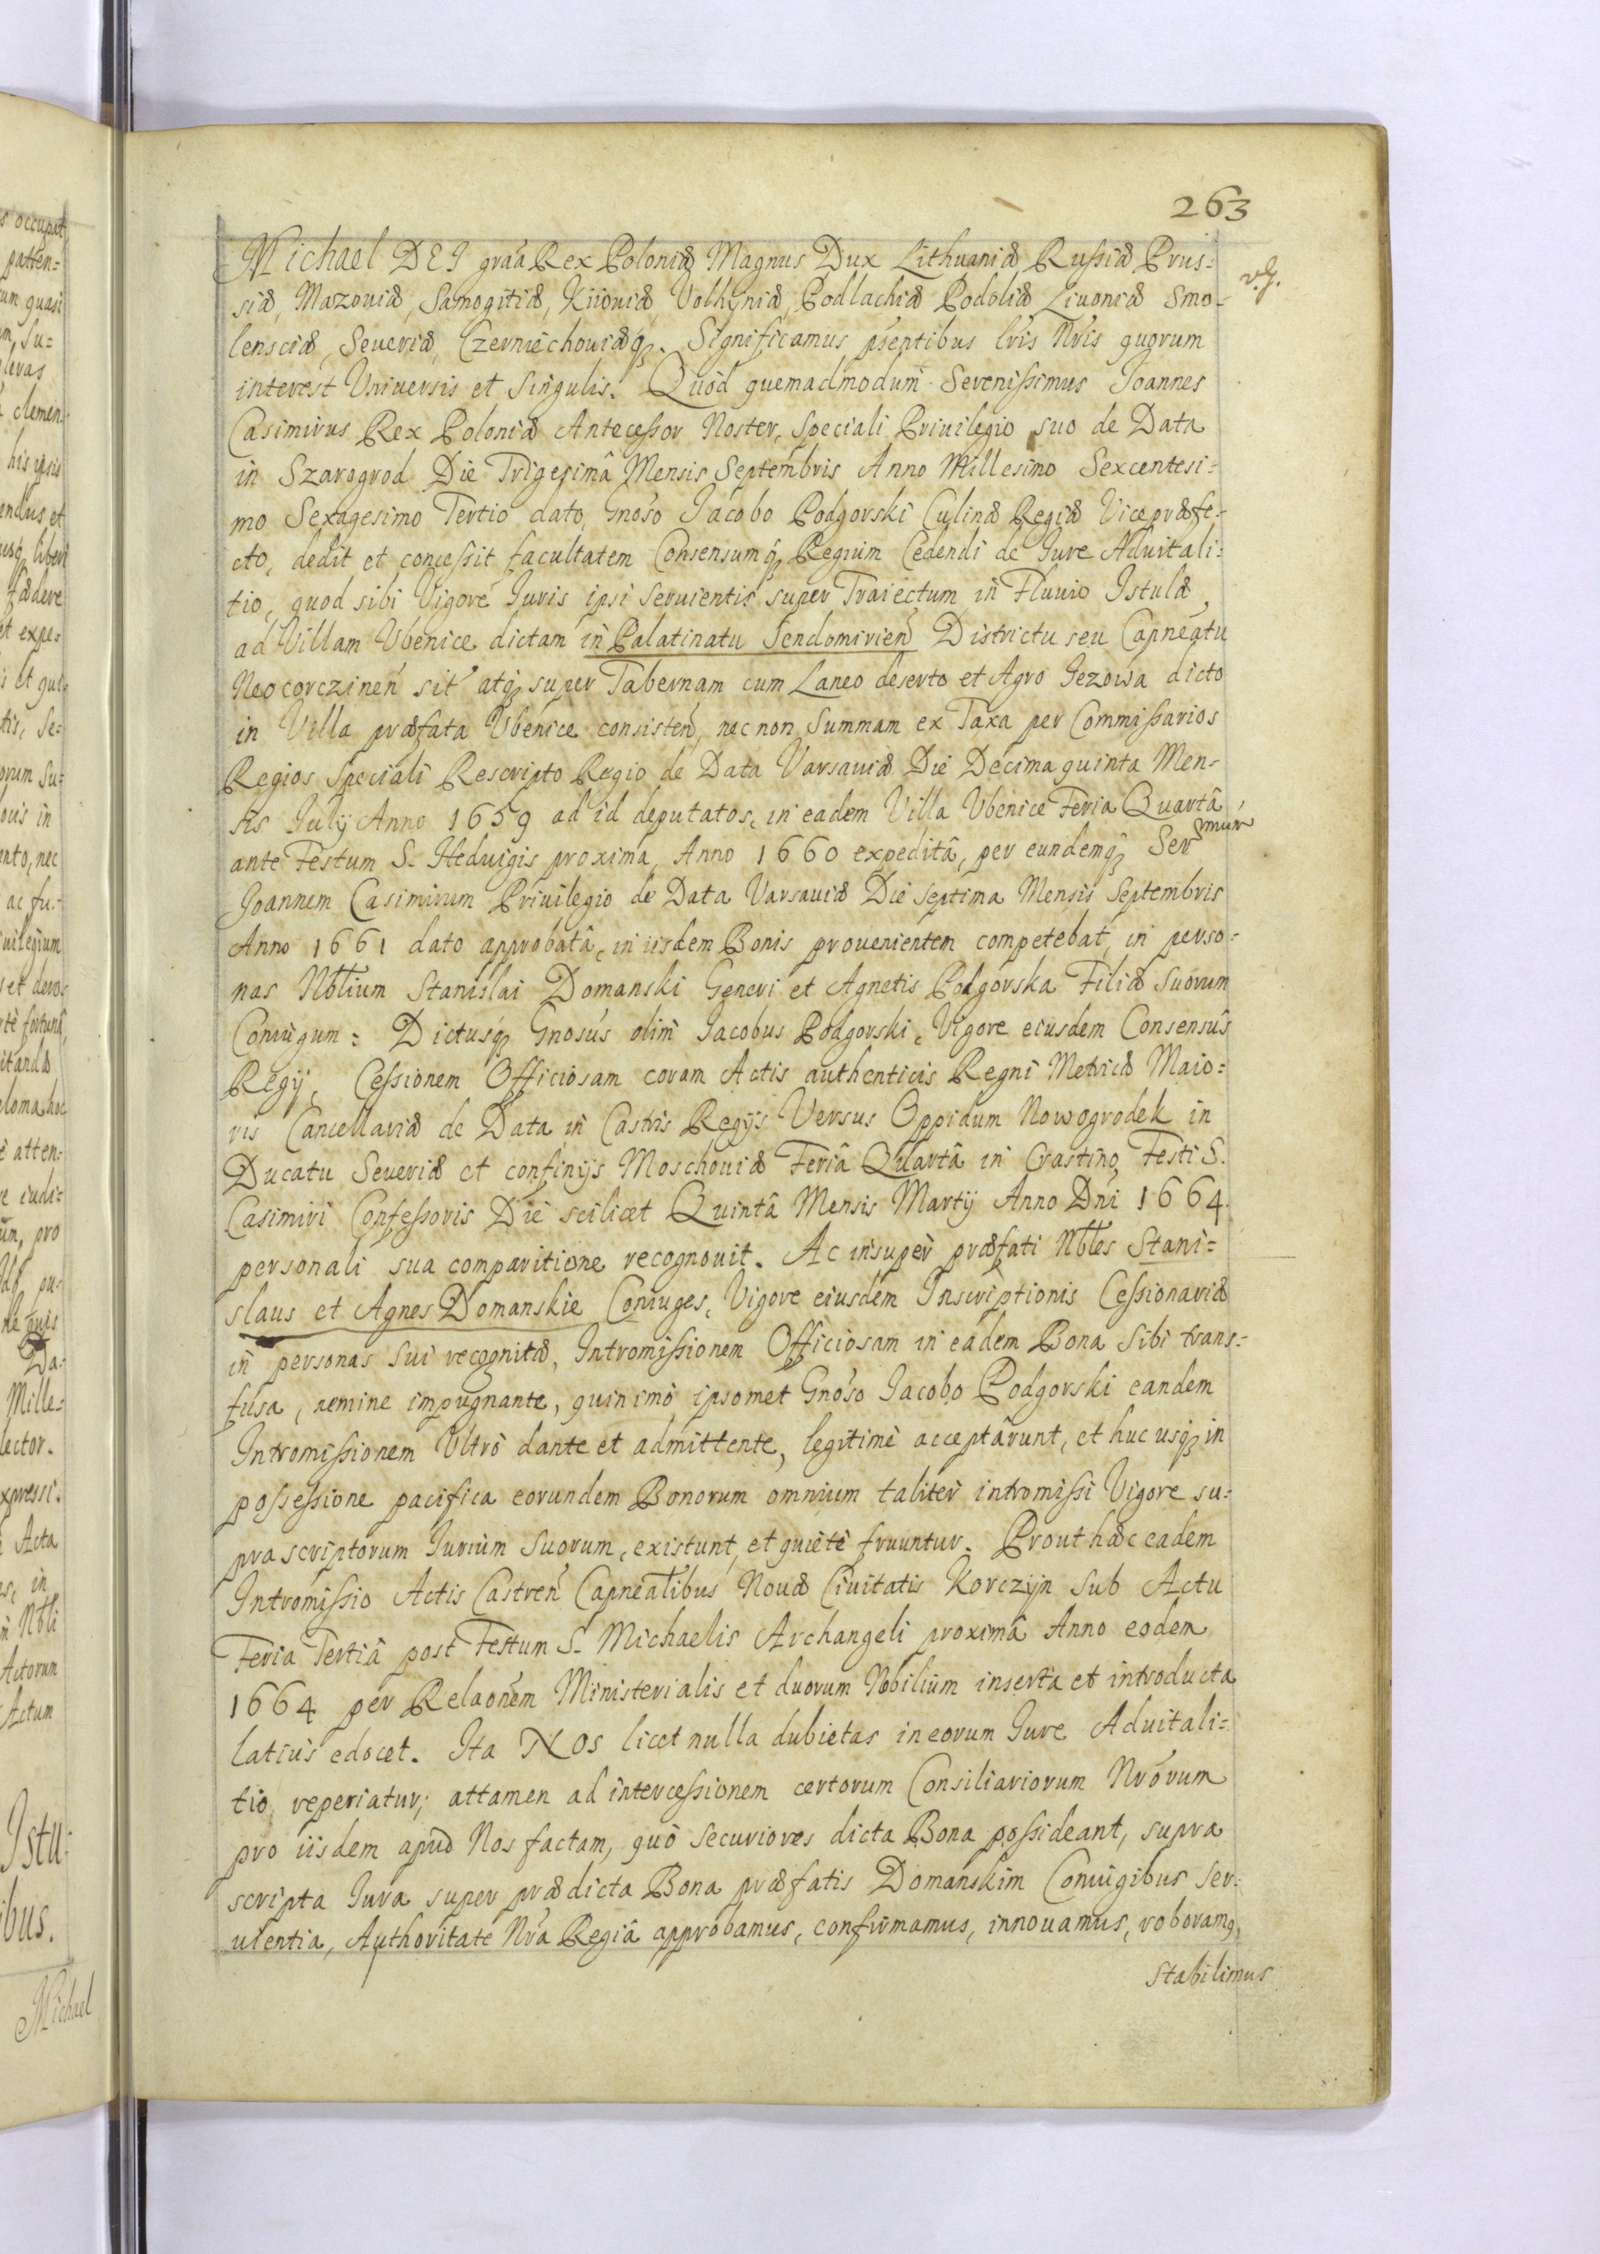 263
Michael DEI graā Rex Poloniæ Magnus Dux Lithuaniæ Russiæ Prus=
siæ, Mazouiæ, Samogitiæ, Kiiouiæ, Volhyniæ, Podlachiæ Podoliæ Liuoniæ Smo-
lensciæ, Seueriæ, Czerniechouiæq3. Significamus pñtibus lris Nris quorum
interest Vniuersis et singulis. Quod quemadmodum Serenissimus Joannes
Casimirus Rex Poloniæ Antecessor Noster, speciali Priuilegio suo de Data
in Szarogrod Die Trigesimâ Mensis Septembris Anno Millesimo Sexcentesi=
mo Sexagesimo Tertio dato, Gnoso Jacobo Podgorski Culinæ Regiæ Vicepræfe-
cto, dedit et concessit facultatem Consensumq3 Regium Cedendi de Jure Aduitali=
tio, quod sibi Vigore Juris ipsi seruientis super Traiectum in Fluuio Istulæ,
ad Villam Vbenice dictam in Palatinatu Sendomirien Districtu seu Capneatu
Neocorczinen sit atq3 super Tabernam cum Laneo deserto et Agro Jezowa dicto
in Villa præfata Vbenice consisten, nec non Summam ex Taxa per Commissarios
Regios speciali Rescripto Regio de Data Varsauiæ Die Decima quinta Men-
sis July Anno 1659 ad id deputatos, in eadem Villa Vbenice Feria Quartâ
ante Festum S. Heduigis proxima, Anno 1660 expeditâ, per eundemq3 Sermum
Joannem Casimirum Priuilegio de Data Varsauiæ Die septima Mensis Septembris
Anno 1661 dato approbatâ, in iisdem Bonis prouenientem competebat, in perso=
nas Nbtium Stanislai Domanski Generi et Agnetis Podgorska Filiæ suorum
Coniugum: Dictusq3 Gnosus olim Jacobus Podgorski, Vigore eiusdem Consensus
Regij, Cessionem Officiosam coram Actis authenticis Regni Metricæ Maio=
ris Cancellariæ de Data in Castris Regijs Versus Oppidum Nowogrodek in
Ducatu Seueriæ et confinijs Moschouiæ Feriâ Quartâ in Crastino Festi S.
Casimiri Confessoris Die scilicet Quintâ Mensis Martij Anno Dni 1664.
personali sua comparitione recognouit. Ac insuper præfati Nbles Stani=
slaus et Agnes Domanskie Coniuges, Vigore eiusdem Inscriptionis Cessionariæ
in personas sui recognitæ, Intromissionem Officiosam in eadem Bona sibi trans=
fusa, nemine impugnante, quinimo ipsomet Gnoso Jacobo Podgorski eandem
Intromissionem Vltro dante et admittente, legitimè acceptârunt, et huc usq3 in
possessione pacifica eorundem Bonorum omnium taliter intromissi Vigore su=
pra scriptorum Jurium suorum, existunt, et quietè fruuntur. Prout hæc eadem
Intromissio Actis Castren Capnealibus Nouæ Ciuitatis Korczyn sub Actu
Feria Tertiâ post Festum S. Michaelis Archangeli proximâ Anno eodem
1664 per Relaonem Ministerialis et duorum Nobilium inserta et introducta
latius edocet. Ita NOS licet nulla dubietas in eorum Jure Aduitali=
tio, reperiatur, attamen ad intercessionem certorum Consiliariorum Nrorum
pro iisdem apud Nos factam, quò securiores dicta Bona possideant, supra
scripta Jura super prædicta Bona præfatis Domanskim Coniugibus ser=
uientia, Authoritate Nra Regiâ approbamus, confirmamus, innouamus, roboramq,
stabilimus